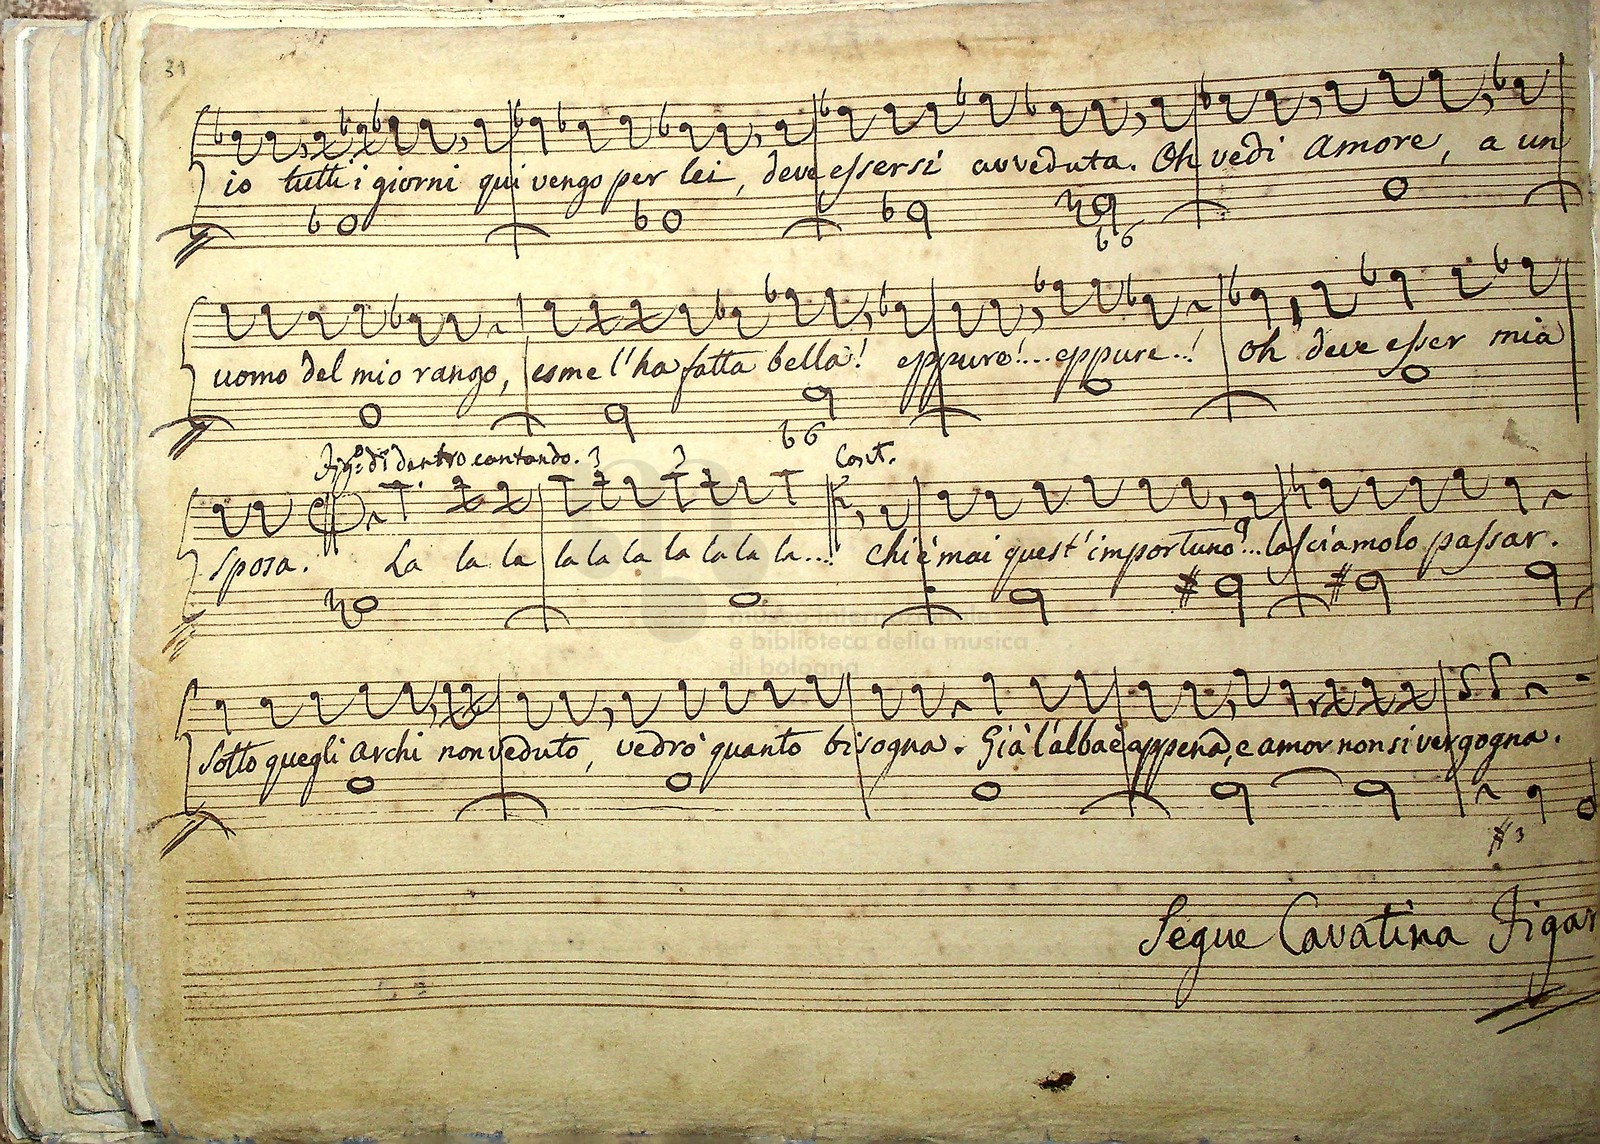 31
io tutti i giorni qui vengo per lei, deve essersi avveduta. Oh vedi Amore, a un
uomo del mio rango, come l'ha fatta bella! eppure!... eppure..! Oh deve esser mia
Fig.º di dentro cantando. 3 3 Cont.
sposa. La la la la la la la la la la...! Chi è mai quest'importuno?... lasciamolo passar.
Sotto quegli archi non veduto, vedrò quanto bisogna. Già l'alba è appena, e amor non si vergogna.
Segue Cavatina Figar
museo internazionale
e biblioteca della musica
di bologna